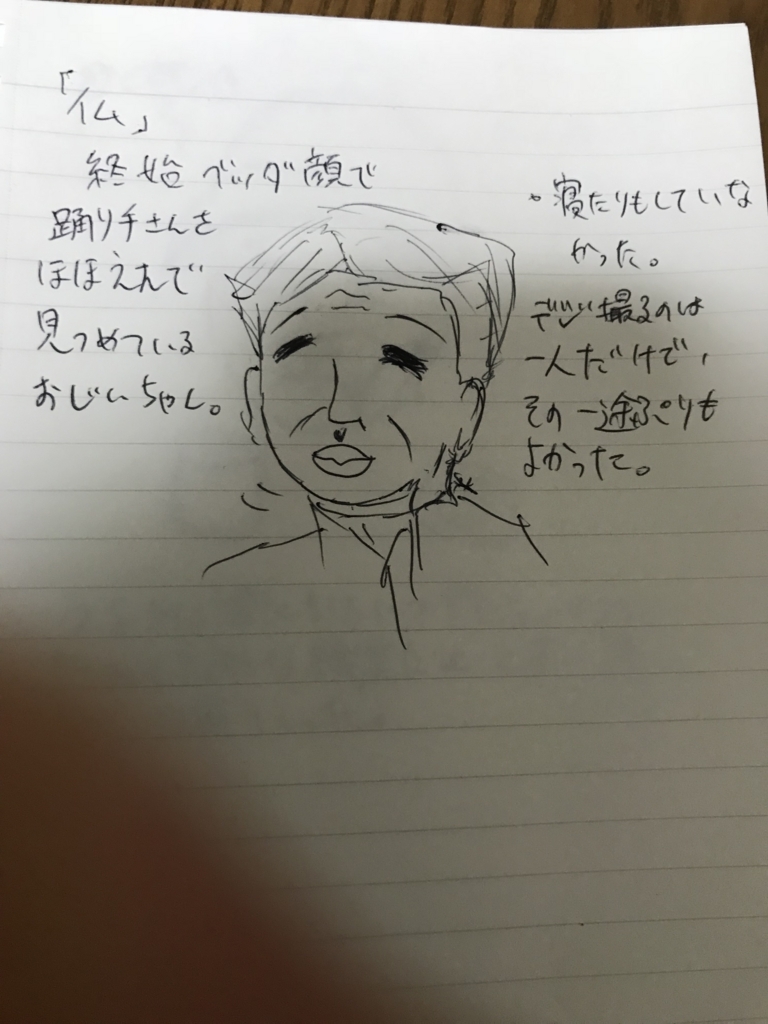 「仏」
終始ブッダ顔で
踊り手さんを
ほほえんで
見つめている
おじいちゃん。
・寝たりもしていな
かった。
デジ撮るのは
一人だけで、
その一途っぷりも
よかった。